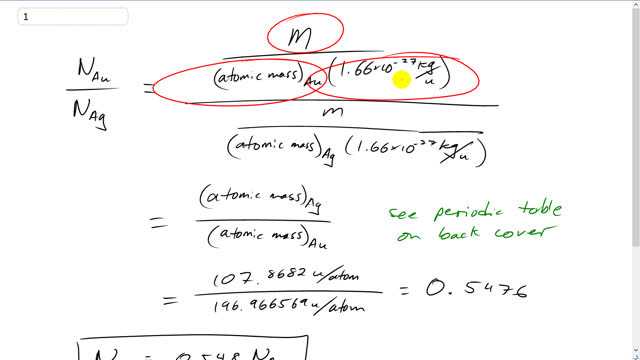 1
m
N_Au / N_Ag = (atomic mass)_Au (1.66×10^-27 kg/u)
m
(atomic mass)_Ag (1.66×10^-27 kg/u)
= (atomic mass)_Ag / (atomic mass)_Au
see periodic table
on back cover
= 107.8682 u/atom / 196.966569 u/atom = 0.5476
= 0.548